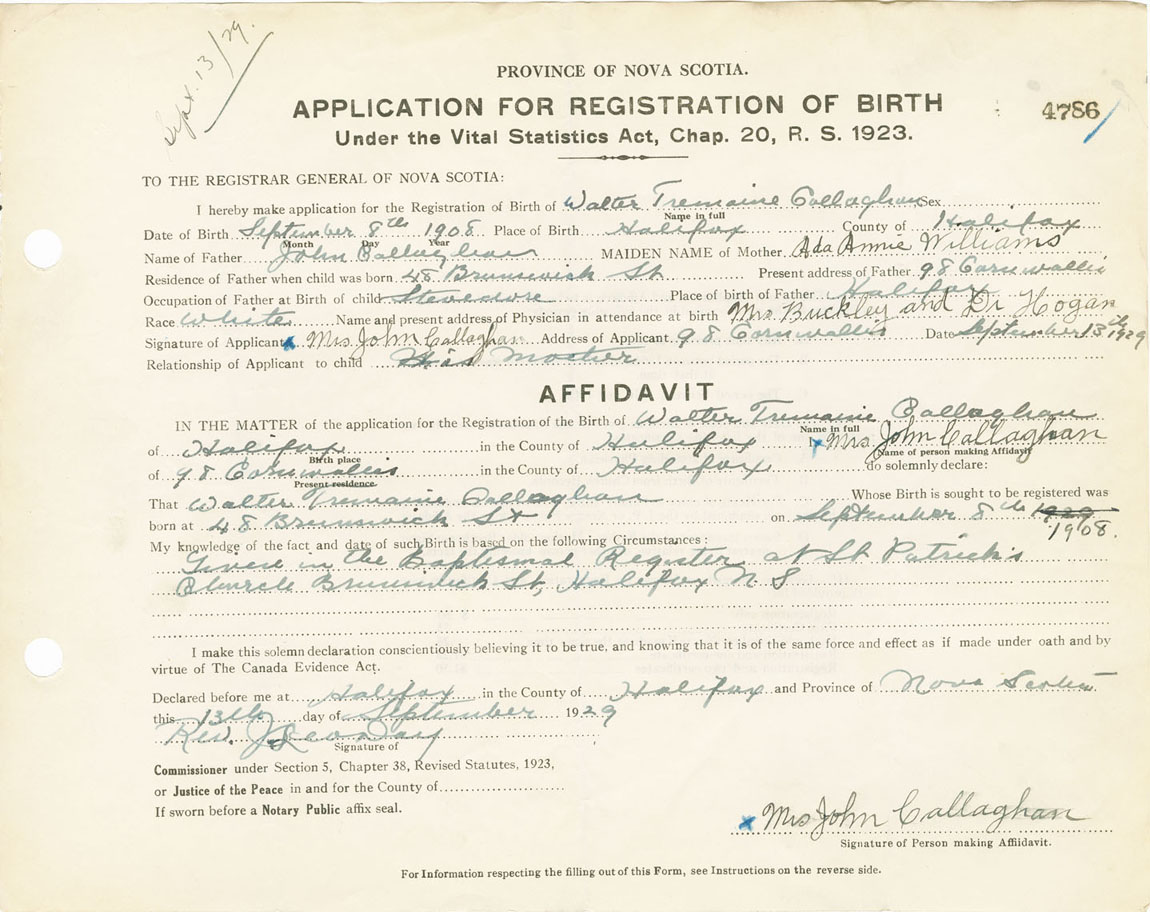 Sept. 13/29.
PROVINCE OF NOVA SCOTIA.
APPLICATION FOR REGISTRATION OF BIRTH
4786
Under the Vital Statistics Act, Chap. 20, R. S. 1923.
TO THE REGISTRAR GENERAL OF NOVA SCOTIA:
I hereby make application for the Registration of Birth of Walter Tremaine Callaghan Sex
Name in full
Date of Birth September 8th 1908 Place of Birth Halifax County of Halifax
Month Day Year
Name of Father John Callaghan MAIDEN NAME of Mother Ada Annie Williams
Residence of Father when child was born 48 Brunswick St Present address of Father 98 Cornwallis
Occupation of Father at Birth of child Stevedore Place of birth of Father Halifax
Race White Name and present address of Physician in attendance at birth Mrs Buckley and Dr Hogan
Signature of Applicant x Mrs John Callaghan Address of Applicant 98 Cornwallis Date September 13th 1929
Relationship of Applicant to child His Mother
AFFIDAVIT
IN THE MATTER of the application for the Registration of the Birth of Walter Tremaine Callaghan
Name in full
of Halifax in the County of Halifax I x Mrs John Callaghan
Birth place Name of person making Affidavit
of 98 Cornwallis in the County of Halifax do solemnly declare:
Present residence.
That Walter Tremaine Callaghan Whose Birth is sought to be registered was
born at 48 Brunswick St on September 8th 1929
1908.
My knowledge of the fact and date of such Birth is based on the following Circumstances:
Given in the Baptismal Register at St Patrick's
Church Brunswick St, Halifax N S
I make this solemn declaration conscientiously believing it to be true, and knowing that it is of the same force and effect as if made under oath and by
virtue of The Canada Evidence Act.
Declared before me at Halifax in the County of Halifax and Province of Nova Scotia
this 13th day of September 1929
Rev.
Signature of
Commissioner under Section 5, Chapter 38, Revised Statutes, 1923,
or Justice of the Peace in and for the County of
If sworn before a Notary Public affix seal.
x Mrs John Callaghan
Signature of Person making Affidavit.
For Information respecting the filling out of this Form, see Instructions on the reverse side.